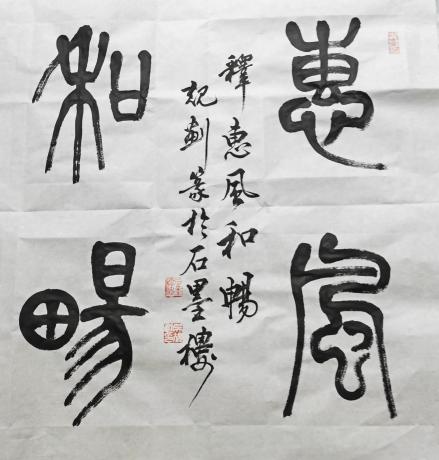 惠風
和暢
釋惠風和暢
篆於石墨樓